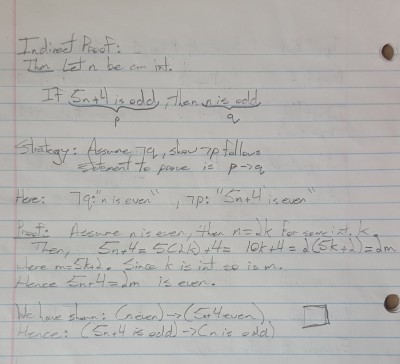 Indirect Proof:
Thm Let n be an int.
If 5n+4 is odd, then n is odd
p q
Strategy: Assume ¬q, show ¬p follows
Statement to prove is p→q
Here: ¬q: "n is even", ¬p: "5n+4 is even"
Proof: Assume n is even, then n=2k for some int. k.
Then, 5n+4 = 5(2k)+4 = 10k+4 = 2(5k+2)=2m
where m=5k+2. Since k is int so is m.
Hence 5n+4=2m is even.
We have shown: (n even)→(5n+4 even)
Hence: (5n+4 is odd)→(n is odd)